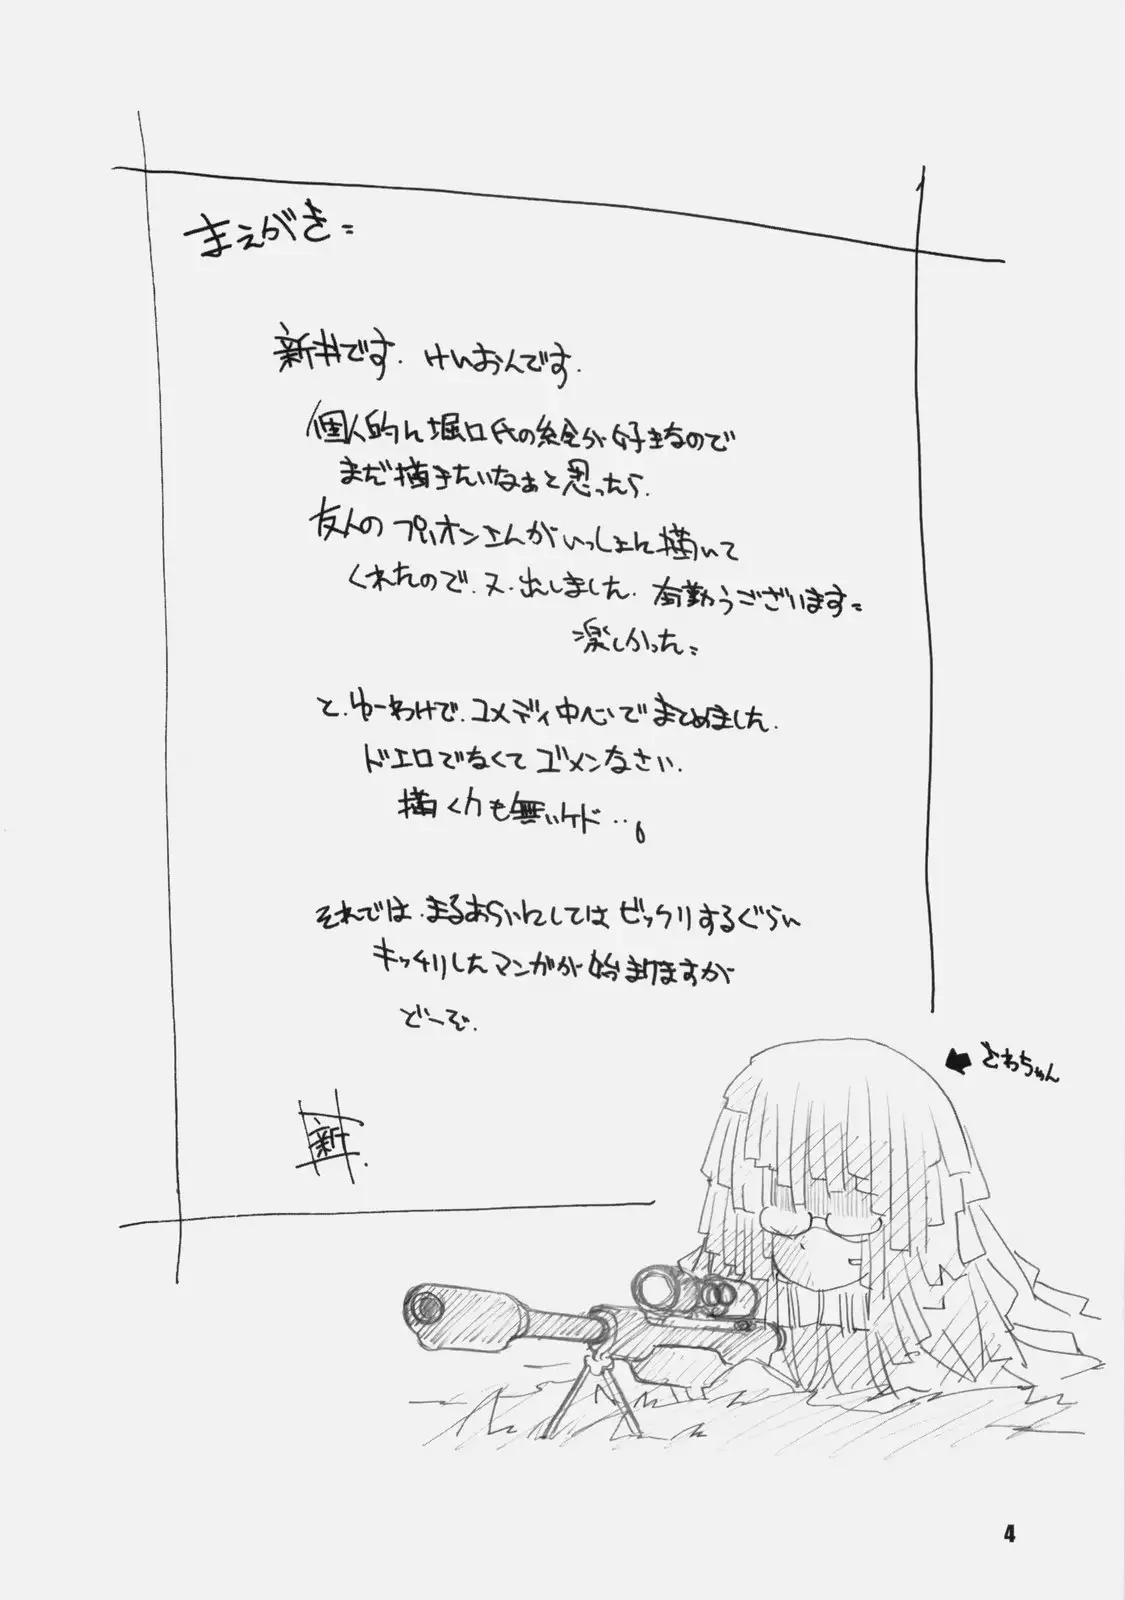 まえがき=
新井です. けいおんです.
個人的に堀口氏の絵が好きなので
まだ描きたいなぁと思ったら.
友人の プリオンさんがいっしょに描いて
くれたので.又.出しました. 有難うございます=
楽しかった=
と.ゆーわけで.コメディ中心でまとめました.
ドエロでなくてゴメンなさい.
描く力も無いケド‥。
それでは.まるあらいにしてはビックリするぐらい
キッチリしたマンガが始まりますが
どーぞ.
新.
とわちゃん
4